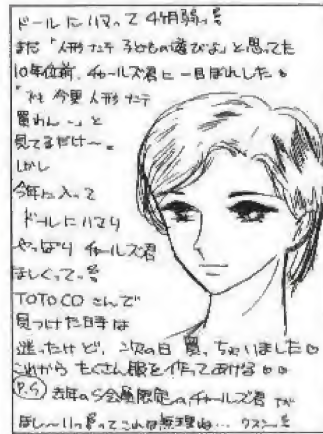 ドールにハマって 4ヶ月弱。
まだ「人形ナンテ 子どもの遊びよ」と思ってた
10年位前、チャールズ君に一目ぼれしました
「今更 人形ナンテ
買わん…」と
見てるだけ〜。
しかし
今年に入って
ドールにハマり
やっぱり チャールズ君
ほしくって。
TOTOCOさんで
見つけた時は
迷ったけど、次の日 買っちゃいました
これから たくさん服を作ってあげる
P.S 去年のS会員限定のチャールズ君が
ほし〜いっ
無理ね… クスン